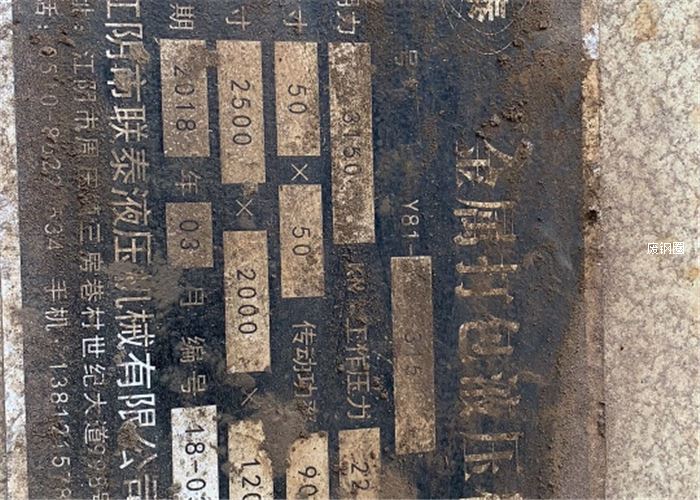 泰
金属打包液压
号 Y81-315
力 3150 KN 工作压力 22
寸 50 × 50 传动功
寸 2500 × 2000 ×
期 2018 年 03 月 编号 18-0
江阴市联泰液压机械有限公司
址：江阴市周庄 三房巷村世纪大道
话：0510- 手机：
废钢圈